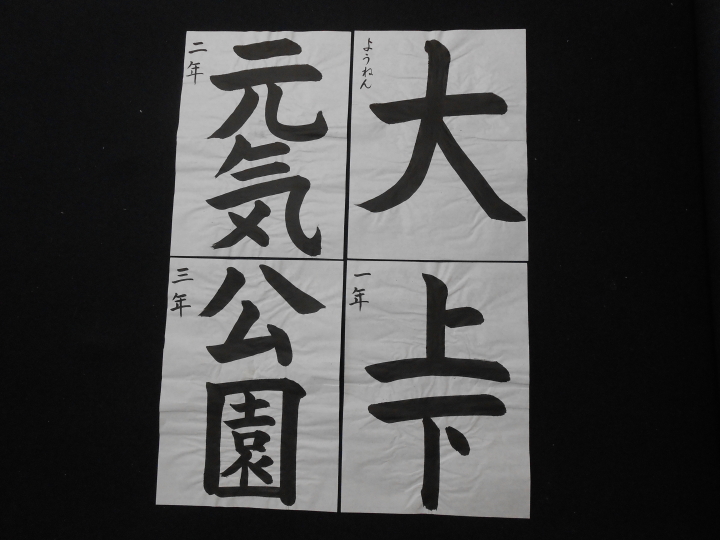 ようねん
大
一年
上下
二年
元気
三年
公園